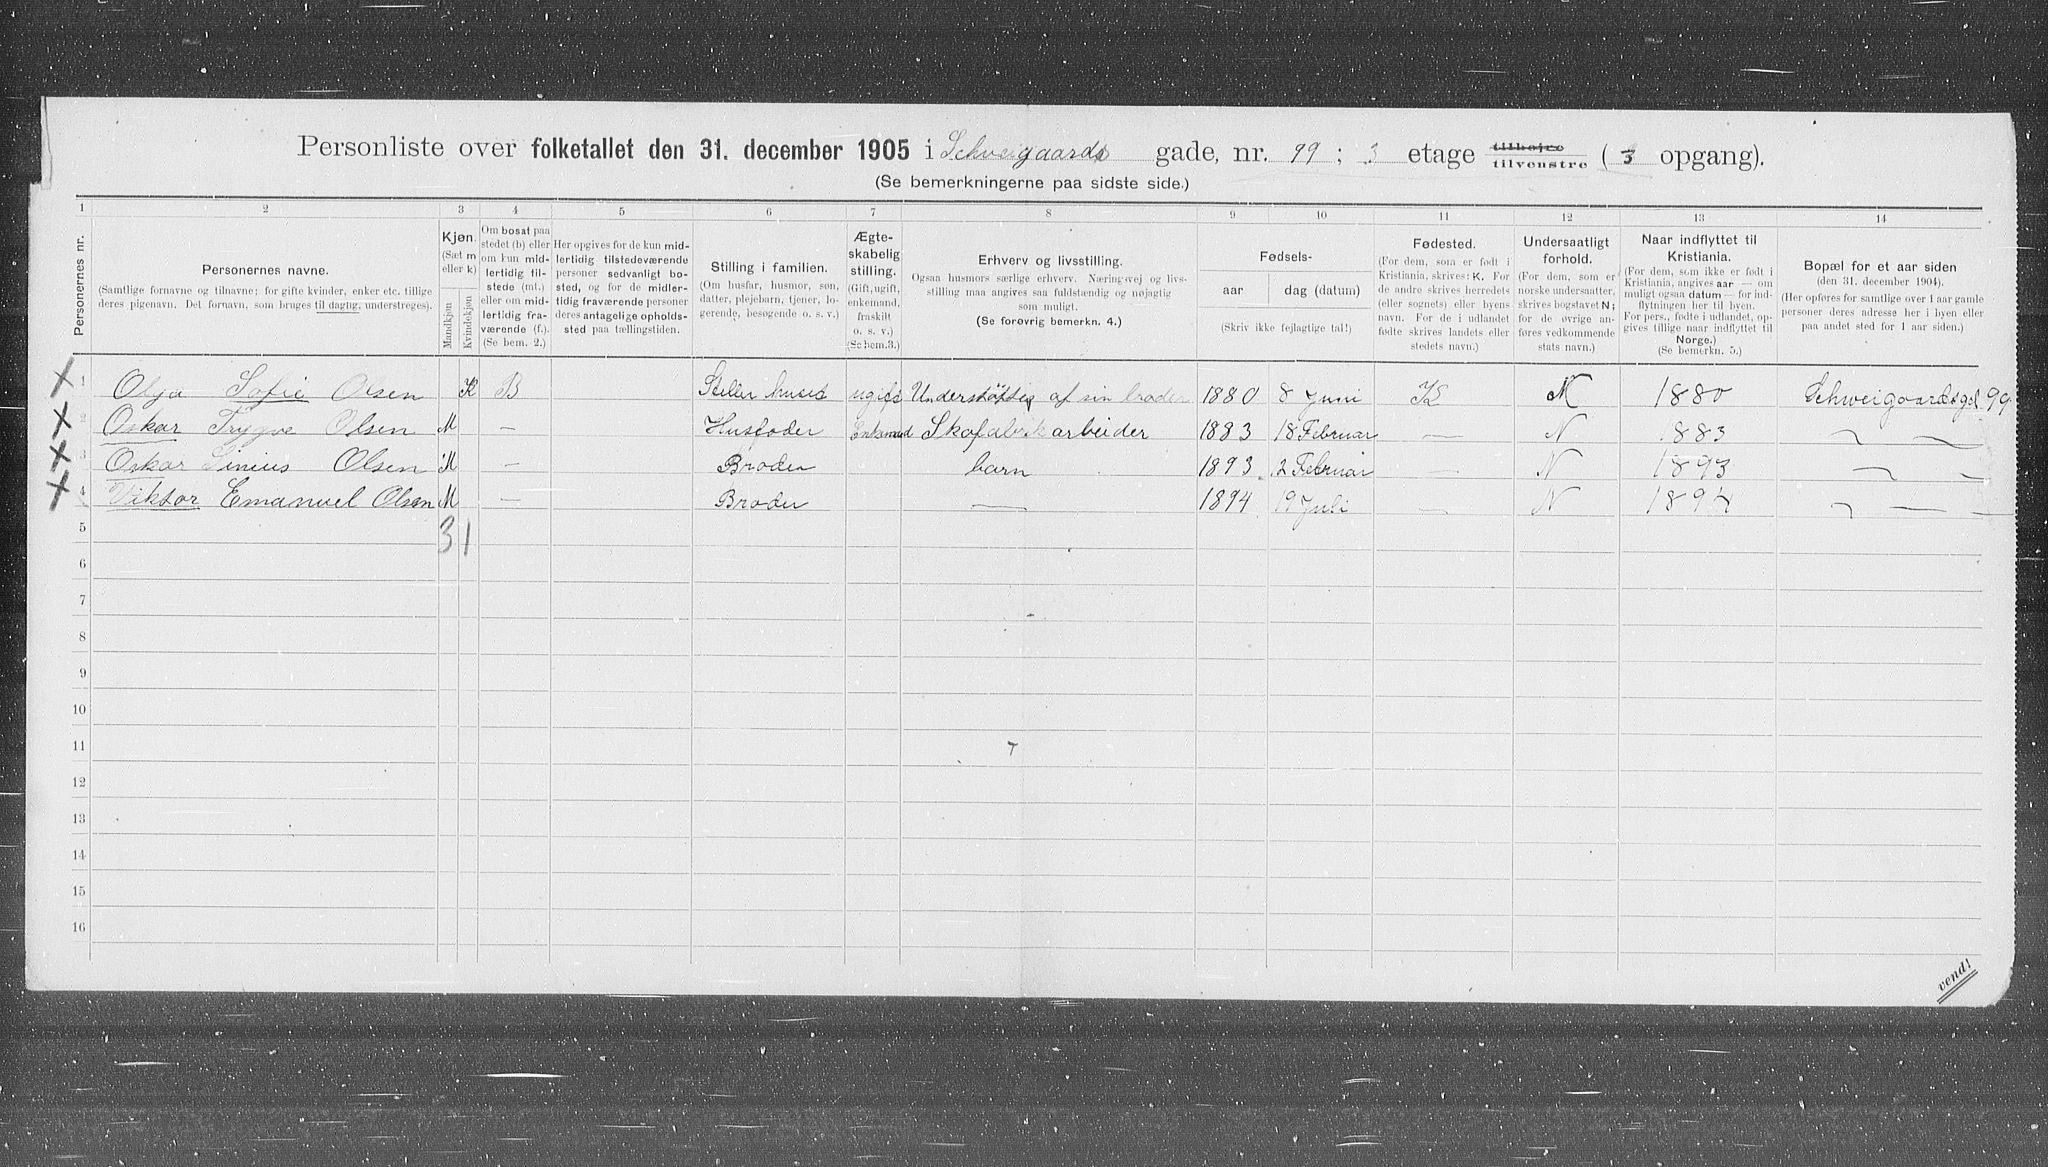 Personliste over folketallet den 31. december 1905 i Schveigaards gade, nr. 99 ; 3 etage tilhøjre tilvenstre ( 3 opgang).
(Se bemerkningerne paa sidste side.)
1 2 3 4 5 6 7 8 9 10 11 12 13 14
Personernes nr.
Personernes navne.
(Samtlige fornavne og tilnavne; for gifte kvinder, enker etc. tillige
deres pigenavn. Det fornavn, som bruges til daglig, understreges).
Kjøn.
(Sæt m
eller k)
Mandkjøn
Kvindekjøn
Om bosat paa
stedet (b) eller
om kun mid-
lertidig til-
stede (mt.)
eller om mid-
lertidig fra-
værende (f.).
(Se bem. 2.)
Her opgives for de kun mid-
lertidig tilstedeværende
personer sedvanlig bo-
sted, og for de midler-
tidig fraværende personer
deres antagelige opholds-
sted paa tællingstiden.
Stilling i familien.
(Om husfar, husmor, søn,
datter, plejebarn, tjener, lo-
gerende, besøgende o. s. v.)
Ægte-
skabelig
stilling.
(Gift, ugift,
enkemand,
fraskilt
o. s. v.)
(Se bem.3.)
Erhverv og livsstilling.
Ogsaa husmors særlige erhverv. Næringsvej og livs-
stilling maa angives saa fuldstændig og nøjagtig
som muligt.
(Se forøvrig bemerkn. 4.)
Fødsels-
aar
dag (datum)
(Skriv ikke fejlagtige tal!)
Fødested.
(For dem, som er født i
Kristiania, skrives: K. For
de andre skrives herredets
(eller sognets) eller byens
navn. For de i udlandet
fødte skrives landets eller
stedets navn.)
Undersaatligt
forhold.
(For dem, som er
norske undersaatter,
skrives bogstavet N;
for de øvrige an-
føres vedkommende
stats navn.)
Naar indflyttet til
Kristiania.
(For dem, som ikke er født i
Kristiania, angives aar — om
muligt ogsaa datum — for ind-
flytningen her til byen.
For pers., fødte i udlandet, op-
gives tillige naar indflyttet til
Norge.)
(Se bemerkn. 5.)
Bopæl for et aar siden
(den 31. december 1904).
(Her opføres for samtlige over 1 aar gamle
personer deres adresse her i byen eller
paa andet sted for 1 aar siden.)
1 Olga Sofie Olsen K B Steller huset ugift Understøttes af sin broder 1880 8 Juni K N 1880 Schweigaardsgd 99
2 Oskar Trygve Olsen M — Husfader Enkemand Skofabrikarbeider 1883 18 Februar — N 1883 — —
3 Oskar Sinius Olsen M — Broder barn 1893 2 Februar — N 1893 — —
4 Viktor Emanuel Olsen M — Broder — 1894 19 Juli — N 1894 — —
5 3 1
6
7
8
9
10
11
12
13
14
15
16
vend!